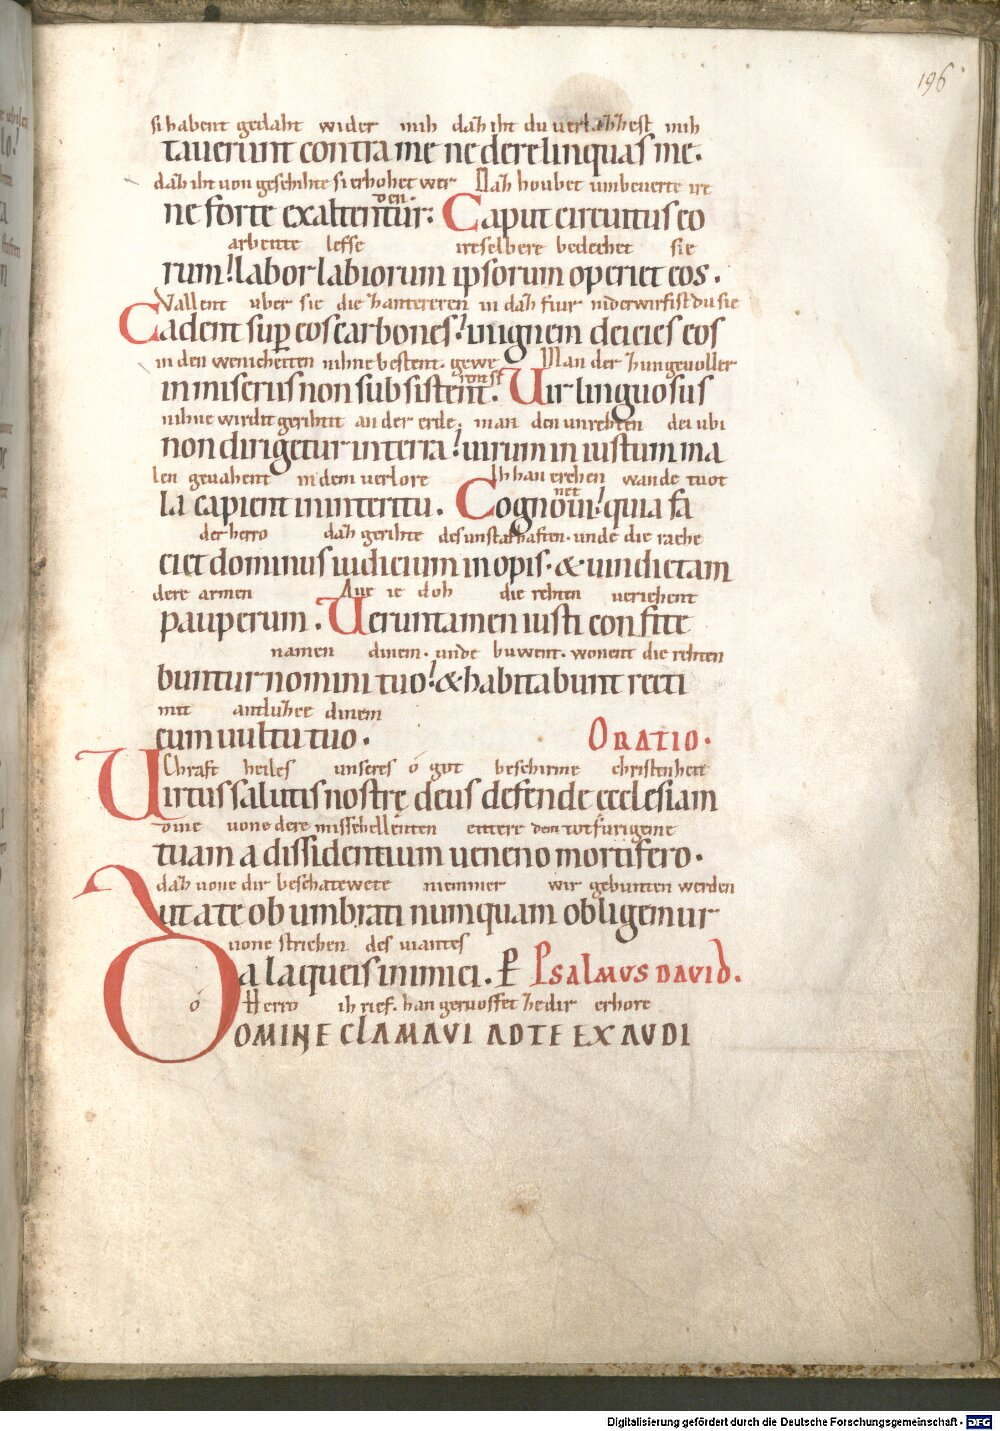 196
si habent gedaht wider mih dah iht du uerlahhest mih
tauerunt contra me ne derelinquas me.
dah iht uon geschihte si erhohet wer Dah houbet umbeuerte ire
den.
ne forte exaltentur: Caput circuitus eo
arbeite lefse ireselbere bedechet sie
rum! labor labiorum ipsorum operiet eos.
Vallent uber sie die zantereren in dah fiur niderwirfist du sie
Cadent sup eos carbones! in ignem deicies eos
in den wenicheiten nihne bestent. gewe Man der zungeuoller
in miseriis non subsistent. Uir linguosus
nihne wirdit gerihtit an der erde. man den unrehten dei ubi
non dirigetur in terra! uirum iniustum ma
len geuahent in dem uerlore Ih han erchen wande tuot
net
la capient in interitu. Cognoui! quia fa
der herro dah gerihte des unstathaften. unde die rache
ciet dominus iudicium inopis. & uindictam
dere armen Aue ie doh die rehten ueriehent
pauperum. Ueruntamen iusti confite
namen dinem. unde buwent. wonent die rehten
buntur nomini tuo! & habitabunt recti
mit antluzze dinem
cum uultu tuo. ORATIO.
Chraft heiles unseres ó got beschirme christenheit
Uirtus salutis nostrę deus defende ecclesiam
dine uone dere missehellenten eittere dem totfurigeme
tuam a dissidentium ueneno mortifero.
dah uone dir beschatewete niemmer wir gebunten werden
Ut a te obumbrati numquam obligemur
uone strichen des uiantes
a laqueis inimici. P PSALMVS DAVID.
ó Herro ih rief. han geruoffet ze dir erhore
DOMINE CLAMAVI AD TE EXAVDI
Digitalisierung gefördert durch die Deutsche Forschungsgemeinschaft - DFG